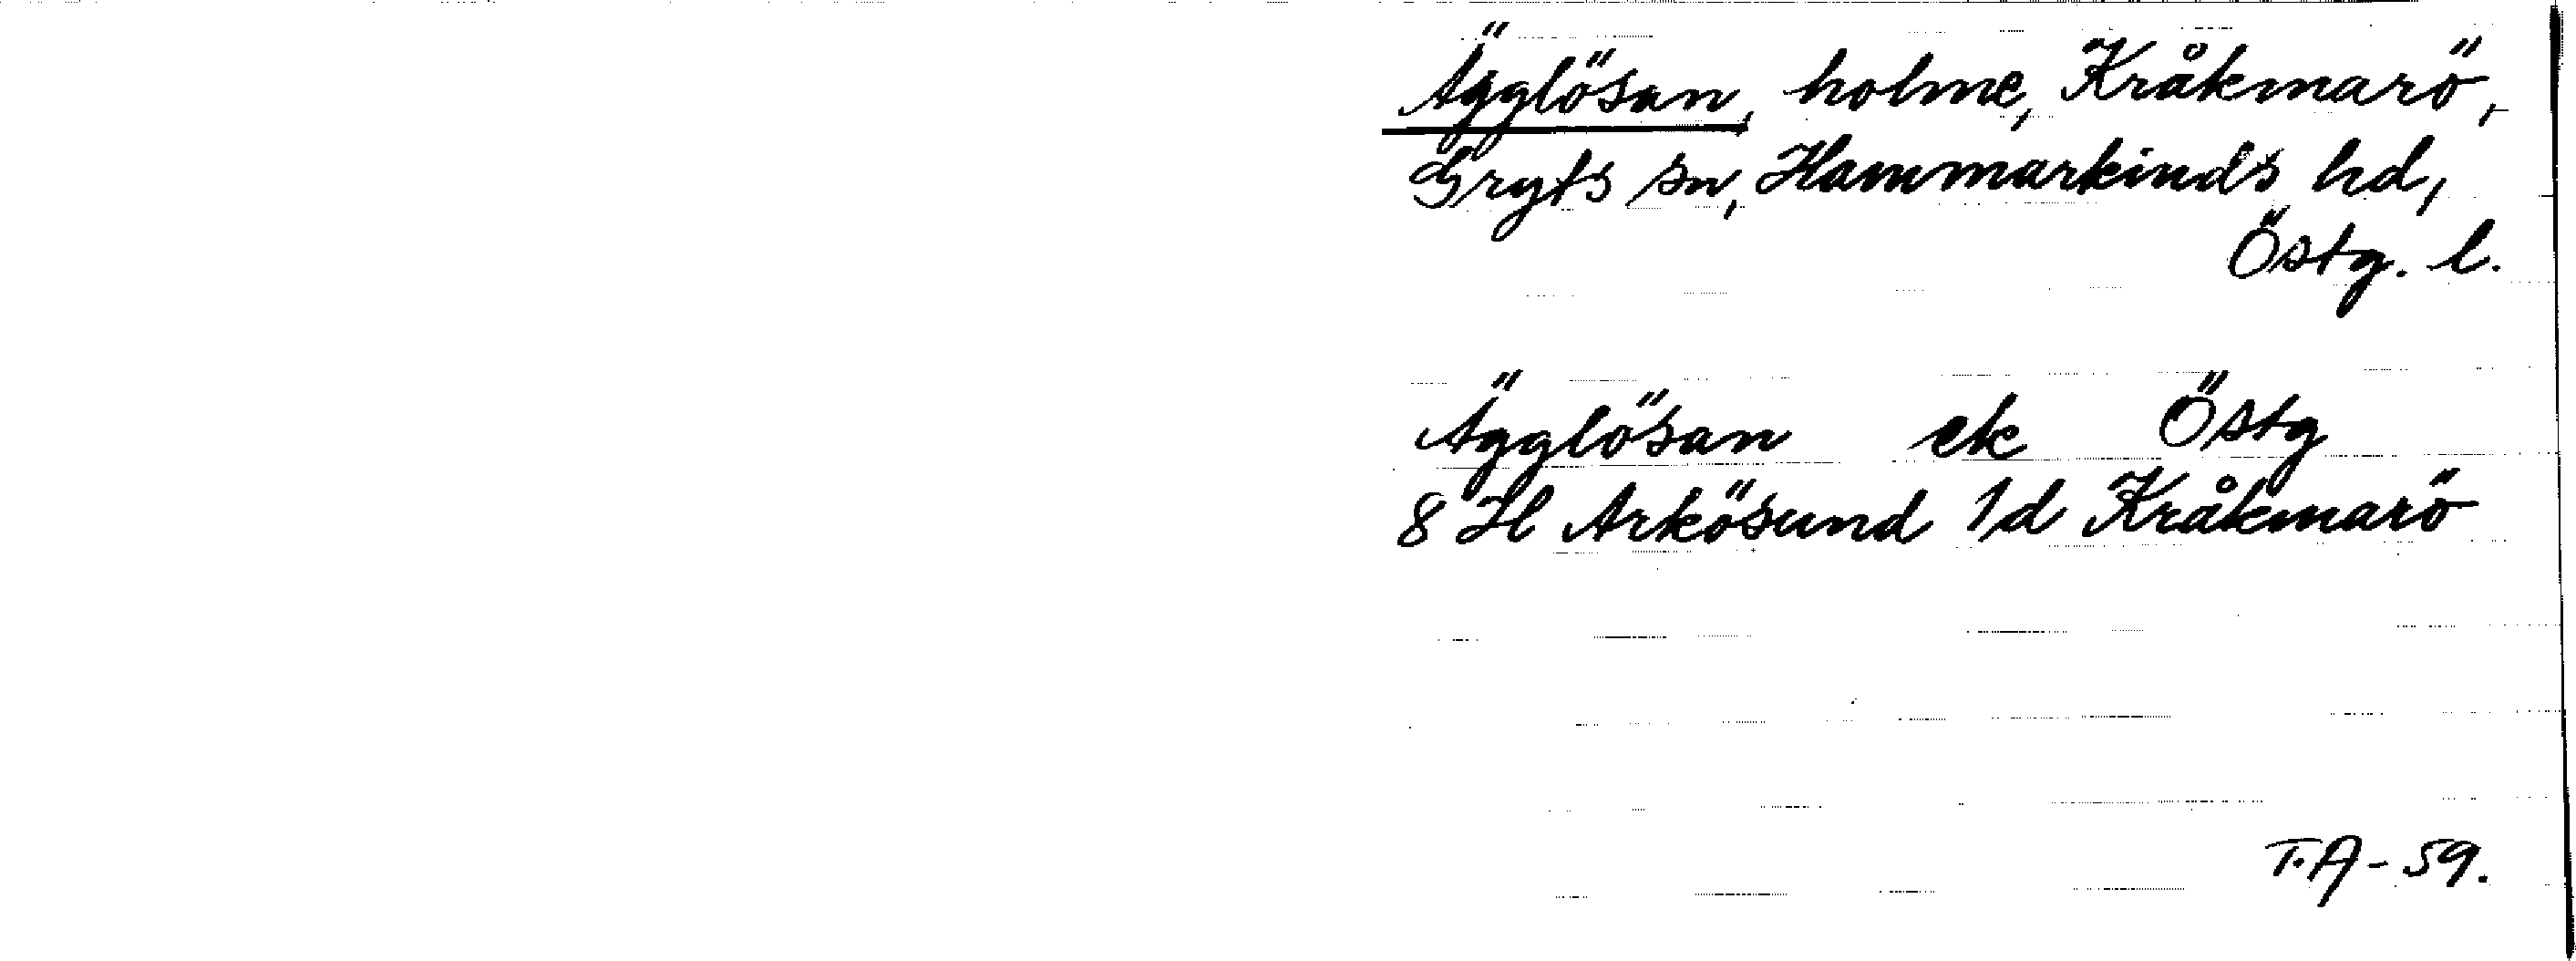 Ägglösan, holme, Kråkmarö,
Gryts sn, Hammarkinds hd,
Östg. l.
Ägglösan ek Östg
8 H Arkösund 1d Kråkmarö
T.A-59.